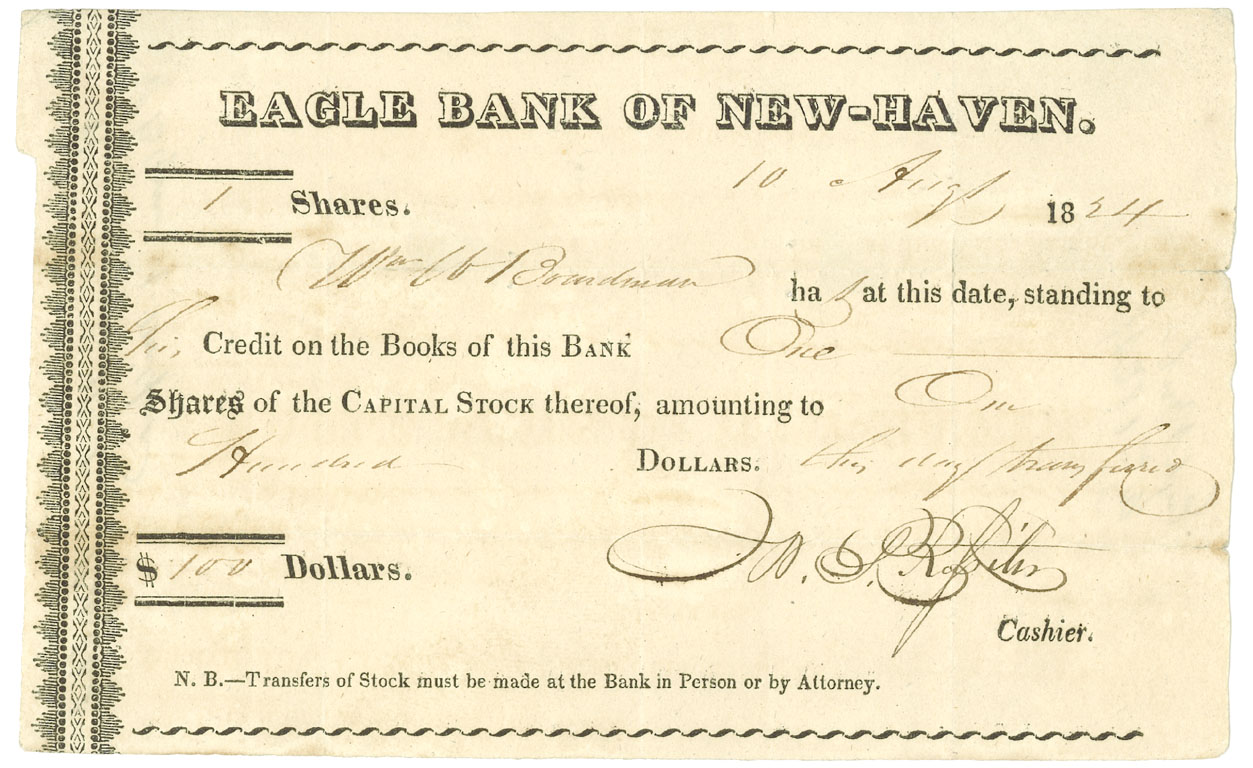 EAGLE BANK OF NEW-HAVEN.
10 Augt 1824
1 Shares.
Wm W Boardman has at this date, standing to
his Credit on the Books of this BANK One
Shares of the CAPITAL STOCK thereof, amounting to One
Hundred DOLLARS. this day transferred
$ 100 Dollars.
W. S. Rossiter
Cashier.
N. B.—Transfers of Stock must be made at the Bank in Person or by Attorney.